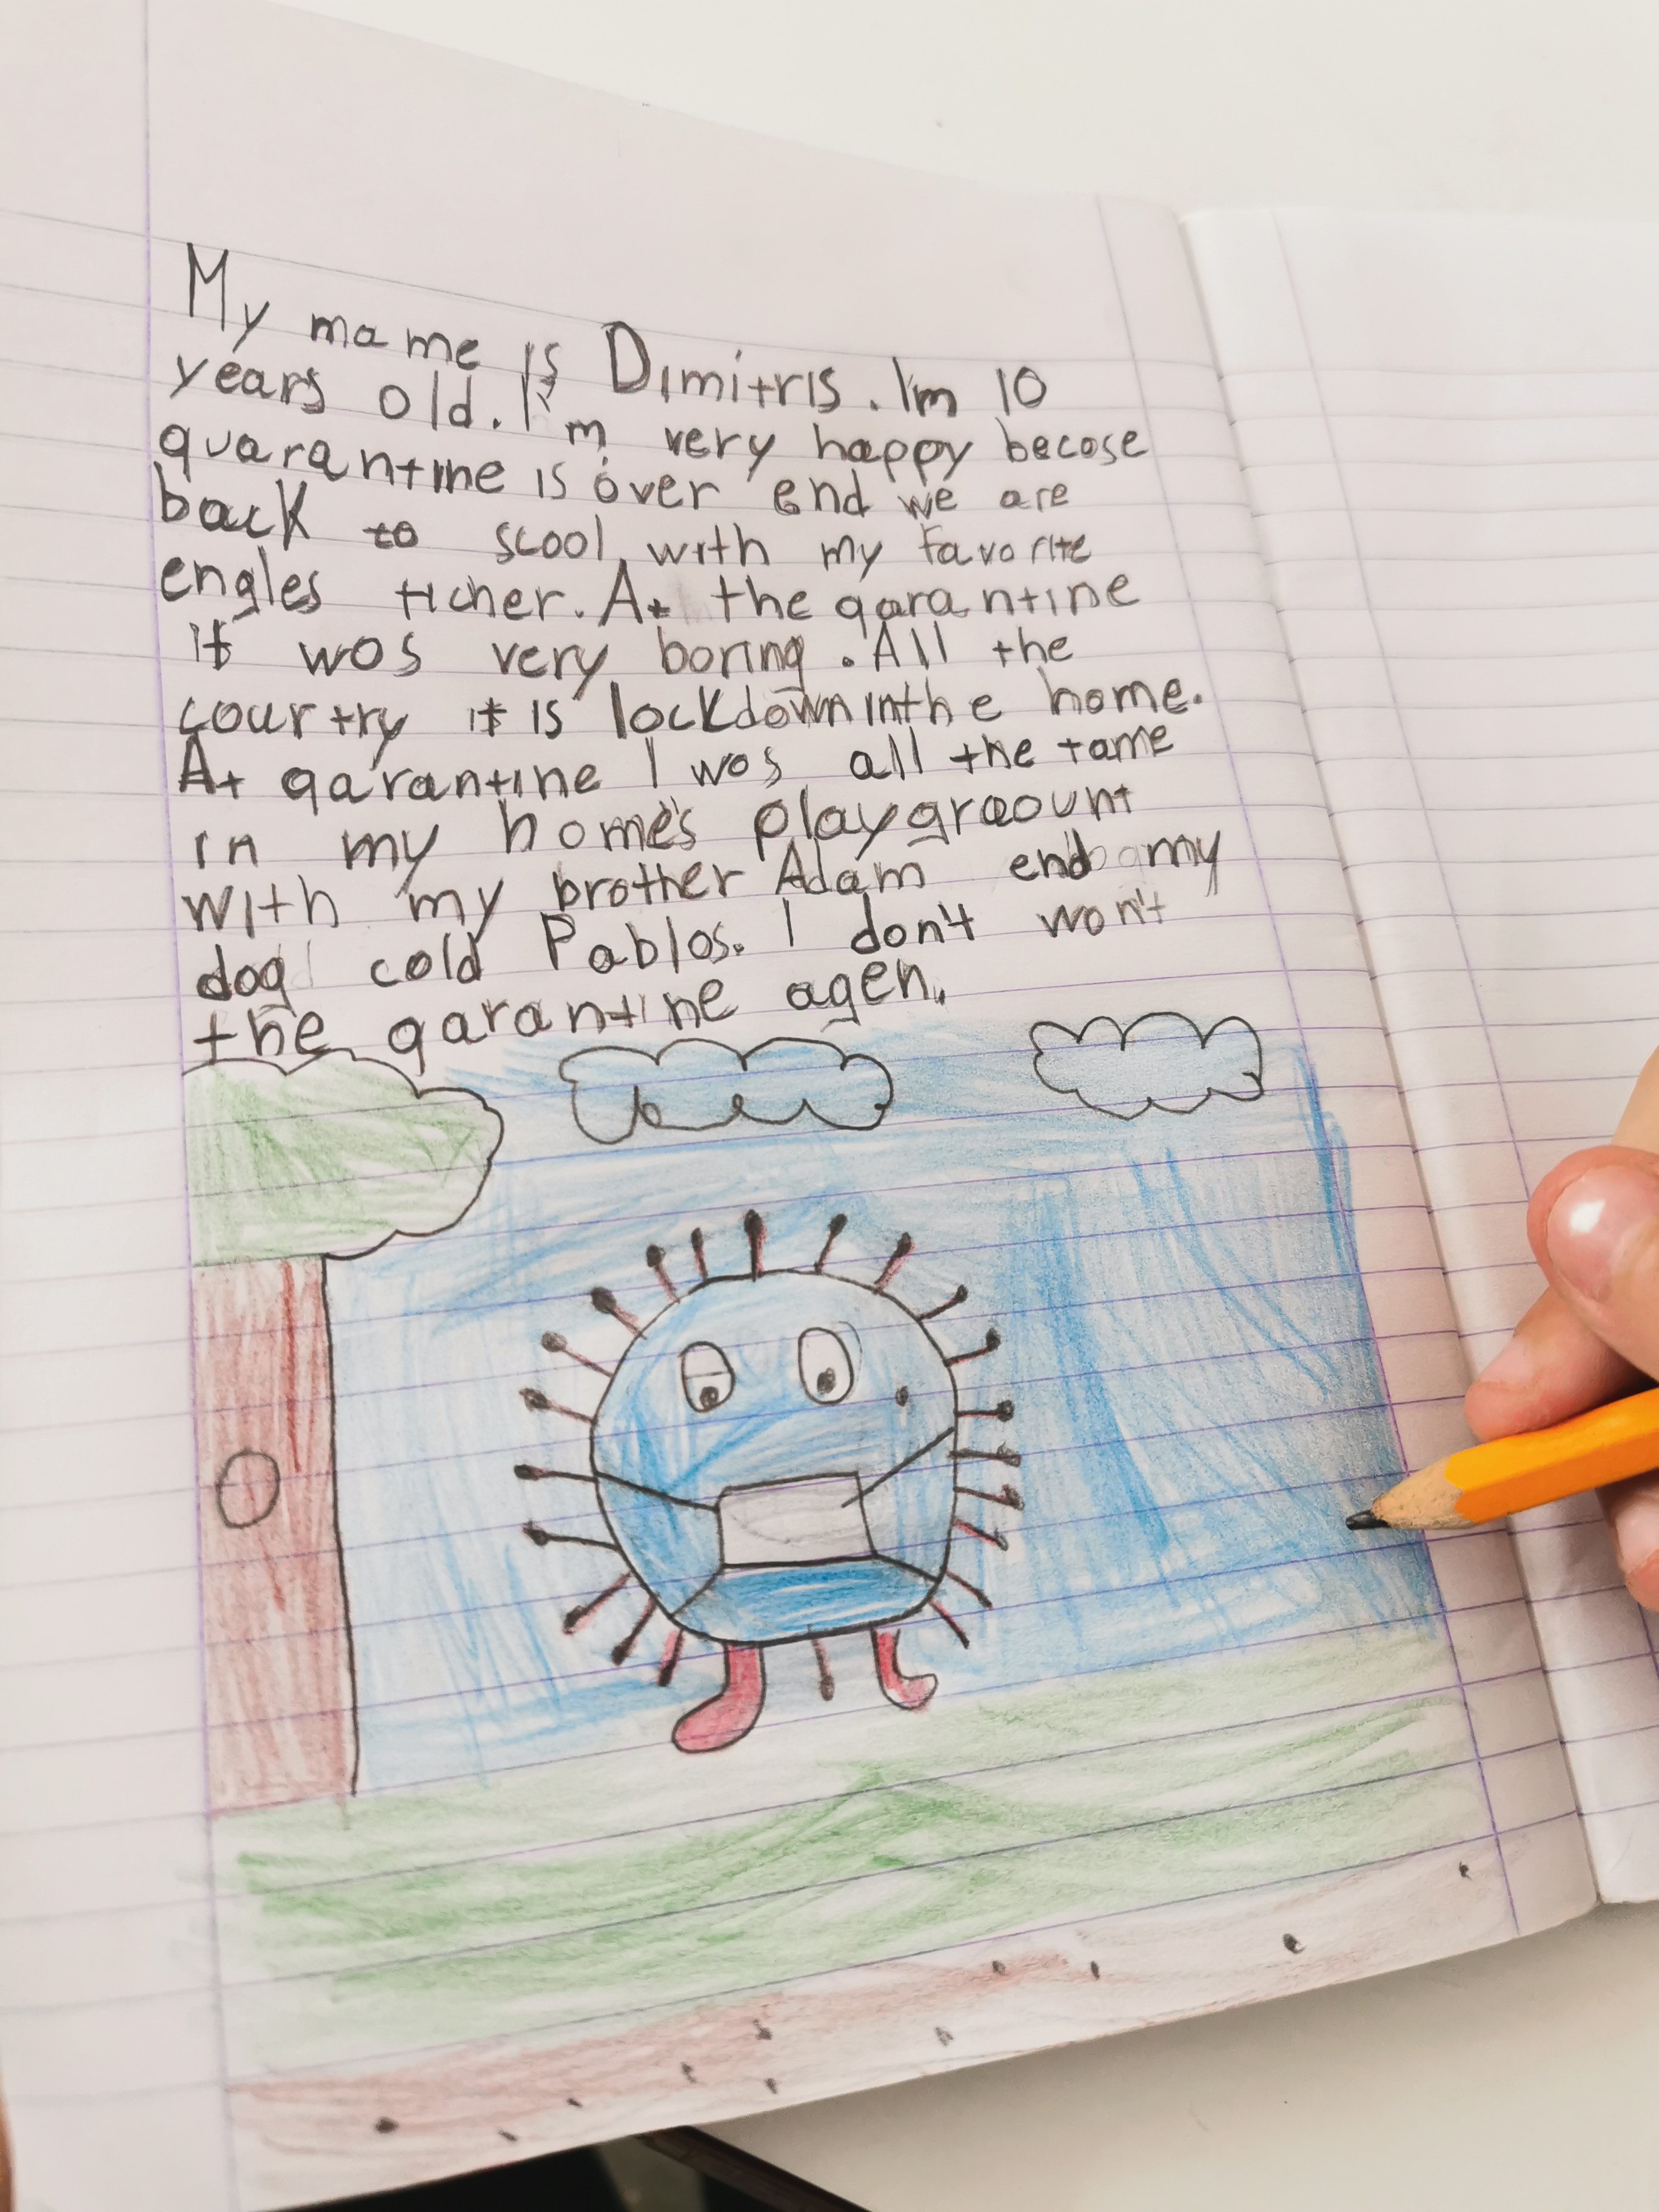 My mame is Dimitris. I'm 10
years old. I'm very happy becose
quarantine is over end we are
back to scool with my favorite
engles ticher. At the qarantine
it wos very boring. All the
courtry it is lockdown inthe home.
At qarantine I wos all the tame
in my home's playgraount
with my brother Adam end my
dog cold Pablos. I don't won't
the qarantine agen.